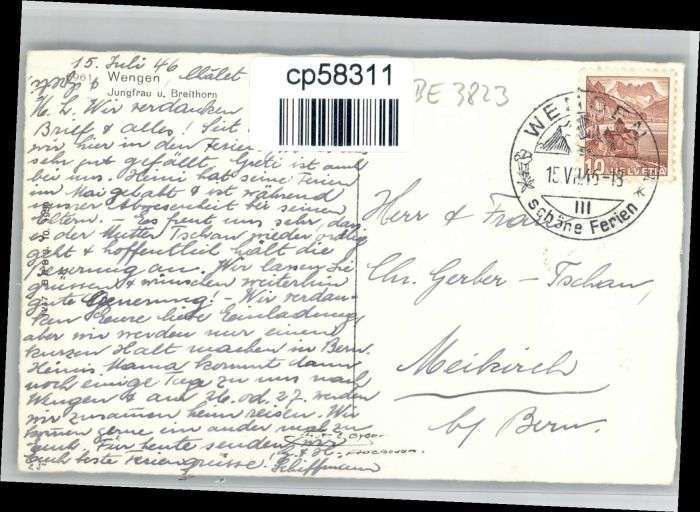 15. Juli 46
9961 Wengen, Châlet
Jungfrau u. Breithorn
M. L. Wir verdanken
Brief & alles! Seit
wir hier in den Ferien
sehr gut gefällt. Greti ist auch
bei uns. Heini hat seine Ferien
im Mai gehabt & ist während
unser Abwesenheit bei seinen
Eltern. – Es freut uns sehr, dass
es der Mutter Tschan wieder ordlig
geht & hoffentlich hält die
an. Wir lassen Sie
grüssen & wünschen weiterhin
gute Genesung! – Wir verdan-
ken Eure liebe Einladung
aber wir werden nur einen
kurzen Halt machen in Bern.
Heinis Mama kommt dann
noch einige Tag zu uns nach
Wengen & am 26. od. 27. werden
wir zusammen heim reisen. Wir
kommen gerne ein ander mal zu
Euch. Für heute senden
Euch beste Feriengrüsse!
Schiffmann
cp58311
BE 3823
WENGEN
15.VII.46-18
III
schöne Ferien
10
HELVETIA
Herr & Frau
Chr. Gerber – Tschan,
Meikirch
b/ Bern.